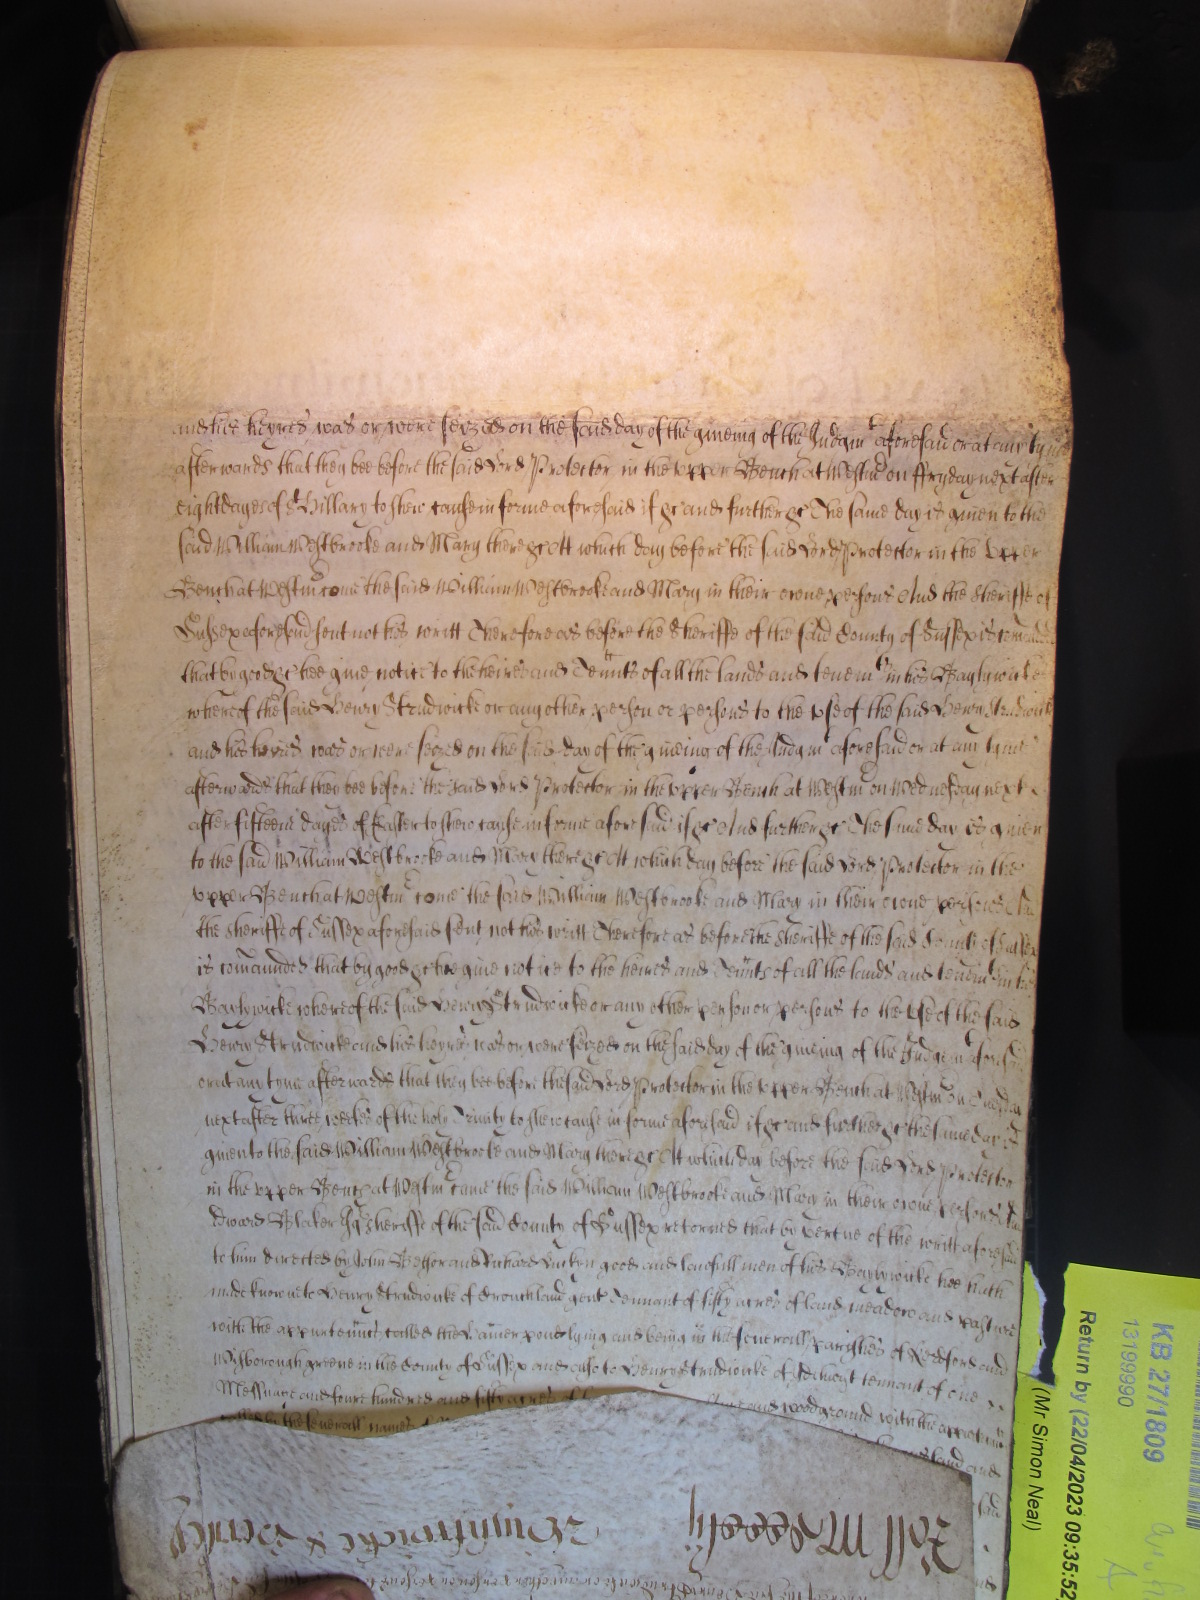 and his heyres was or were seized on the said day of the giueing of the Judgmt aforesaid or at any tyme
afterwards that they bee before the said Lord Protector in the vpper Bench at Westm on ffryday next after
eight dayes of St Hillary to shew cause in forme aforesaid if &c and further &c The same day is giuen to the
said William Westbrooke and Mary there &c At which day before the said Lord Protector in the vpper
Bench at Westm come the said William Westbrooke and Mary in their owne persons And the Sheriffe of
Sussex aforesaid sent not his writt Therefore as before the Sheriffe of the said County of Sussex is comanded
that by good &c hee giue notice to the heires and Tennts of all the lands and tenemts in his Baylywicke
whereof the said Henry Strudwicke or any other person or persons to the vse of the said Henry Strudwicke
and his heyres was or were seized on the said day of the giueing of the Judgmt aforesaid or at any tyme
afterwards that they bee before the said Lord Protector in the vpper Bench at Westm on Wednesday next
after fifteene dayes of Easter to shew cause in forme aforesaid if &c And further &c The same day is giuen
to the said William Westbrooke and Mary there &c At which day before the said Lord Protector in the
vpper Bench at Westm come the said William Westbrooke and Mary in their owne persons And
the sheriffe of Sussex aforesaid sent not his writt Therefore as before the Sheriffe of the said County of Sussex
is comaunded that by good &c hee giue notice to the heires and Tennts of all the lands and tenemts in his
Baylywicke whereof the said Henry Strudwicke or any other person or persons to the vse of the said
Henry Strudwicke and his heyres was or were seized on the said day of the giueing of the Judgemt aforesaid
or at any tyme afterwards that they bee before the said Lord Protector in the vpper Bench at Westm on
next after three weekes of the holy Trinity to shew cause in forme aforesaid if &c and further &c the same day is
giuen to the said William Westbrooke and Mary there &c At which day before the said Lord Protector
in the vpper Bench at Westm came the said William Westbrooke and Mary in their owne persons And
Edward Blaker Esqr sheriffe of the said County of Sussex retorned that by vertue of the writt aforesaid
to him directed by John and Richard good and lawfull men of his Baylywicke hee hath
made knowne to Henry Strudwicke of gent Tennant of fifty acres of land meadow and pasture
with the appurtennces called the lying and being in the seuerall parishes of and
Wisborough greene in the County of Sussex and also to Henry Strudwicke of tennant of one
Messuage and foure hundred and fifty acres of and woodground with the appurtennces
called by the seuerall names of land and
said
KB 27/1809
13199990
Return by (22/04/2023 09:35:52
(Mr Simon Neal)